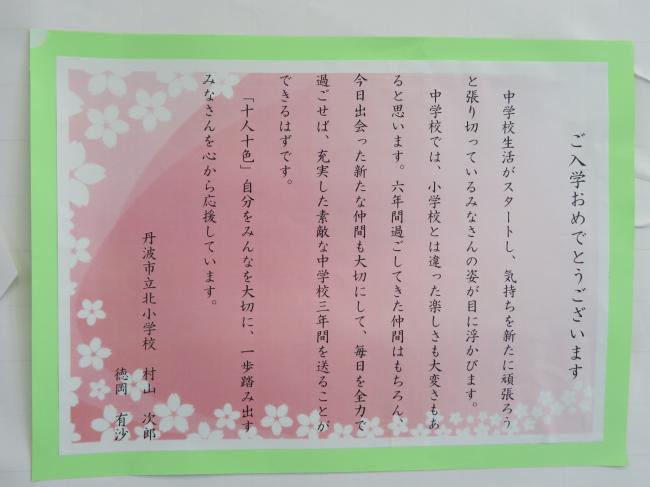 ご入学おめでとうございます
中学校生活がスタートし、気持ちを新たに頑張ろう
と張り切っているみなさんの姿が目に浮かびます。
中学校では、小学校とは違った楽しさも大変さもあ
ると思います。六年間過ごしてきた仲間はもちろん、
今日出会った新たな仲間も大切にして、毎日を全力で
過ごせば、充実した素敵な中学校三年間を送ることが
できるはずです。
「十人十色」自分をみんなを大切に、一歩踏み出す
みなさんを心から応援しています。
丹波市立北小学校　村山　次郎
徳岡　有沙